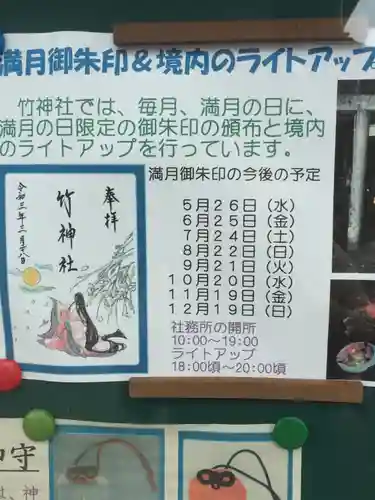 満月御朱印＆境内のライトアップ
竹神社では、毎月、満月の日に、
満月の日限定の御朱印の頒布と境内
のライトアップを行っています。
満月御朱印の今後の予定
5月26日（水）
6月25日（金）
7月24日（土）
8月22日（日）
9月21日（火）
10月20日（水）
11月19日（金）
12月19日（日）
社務所の開所
10:00〜19:00
ライトアップ
18:00頃〜20:00頃
奉拝
竹神社
守